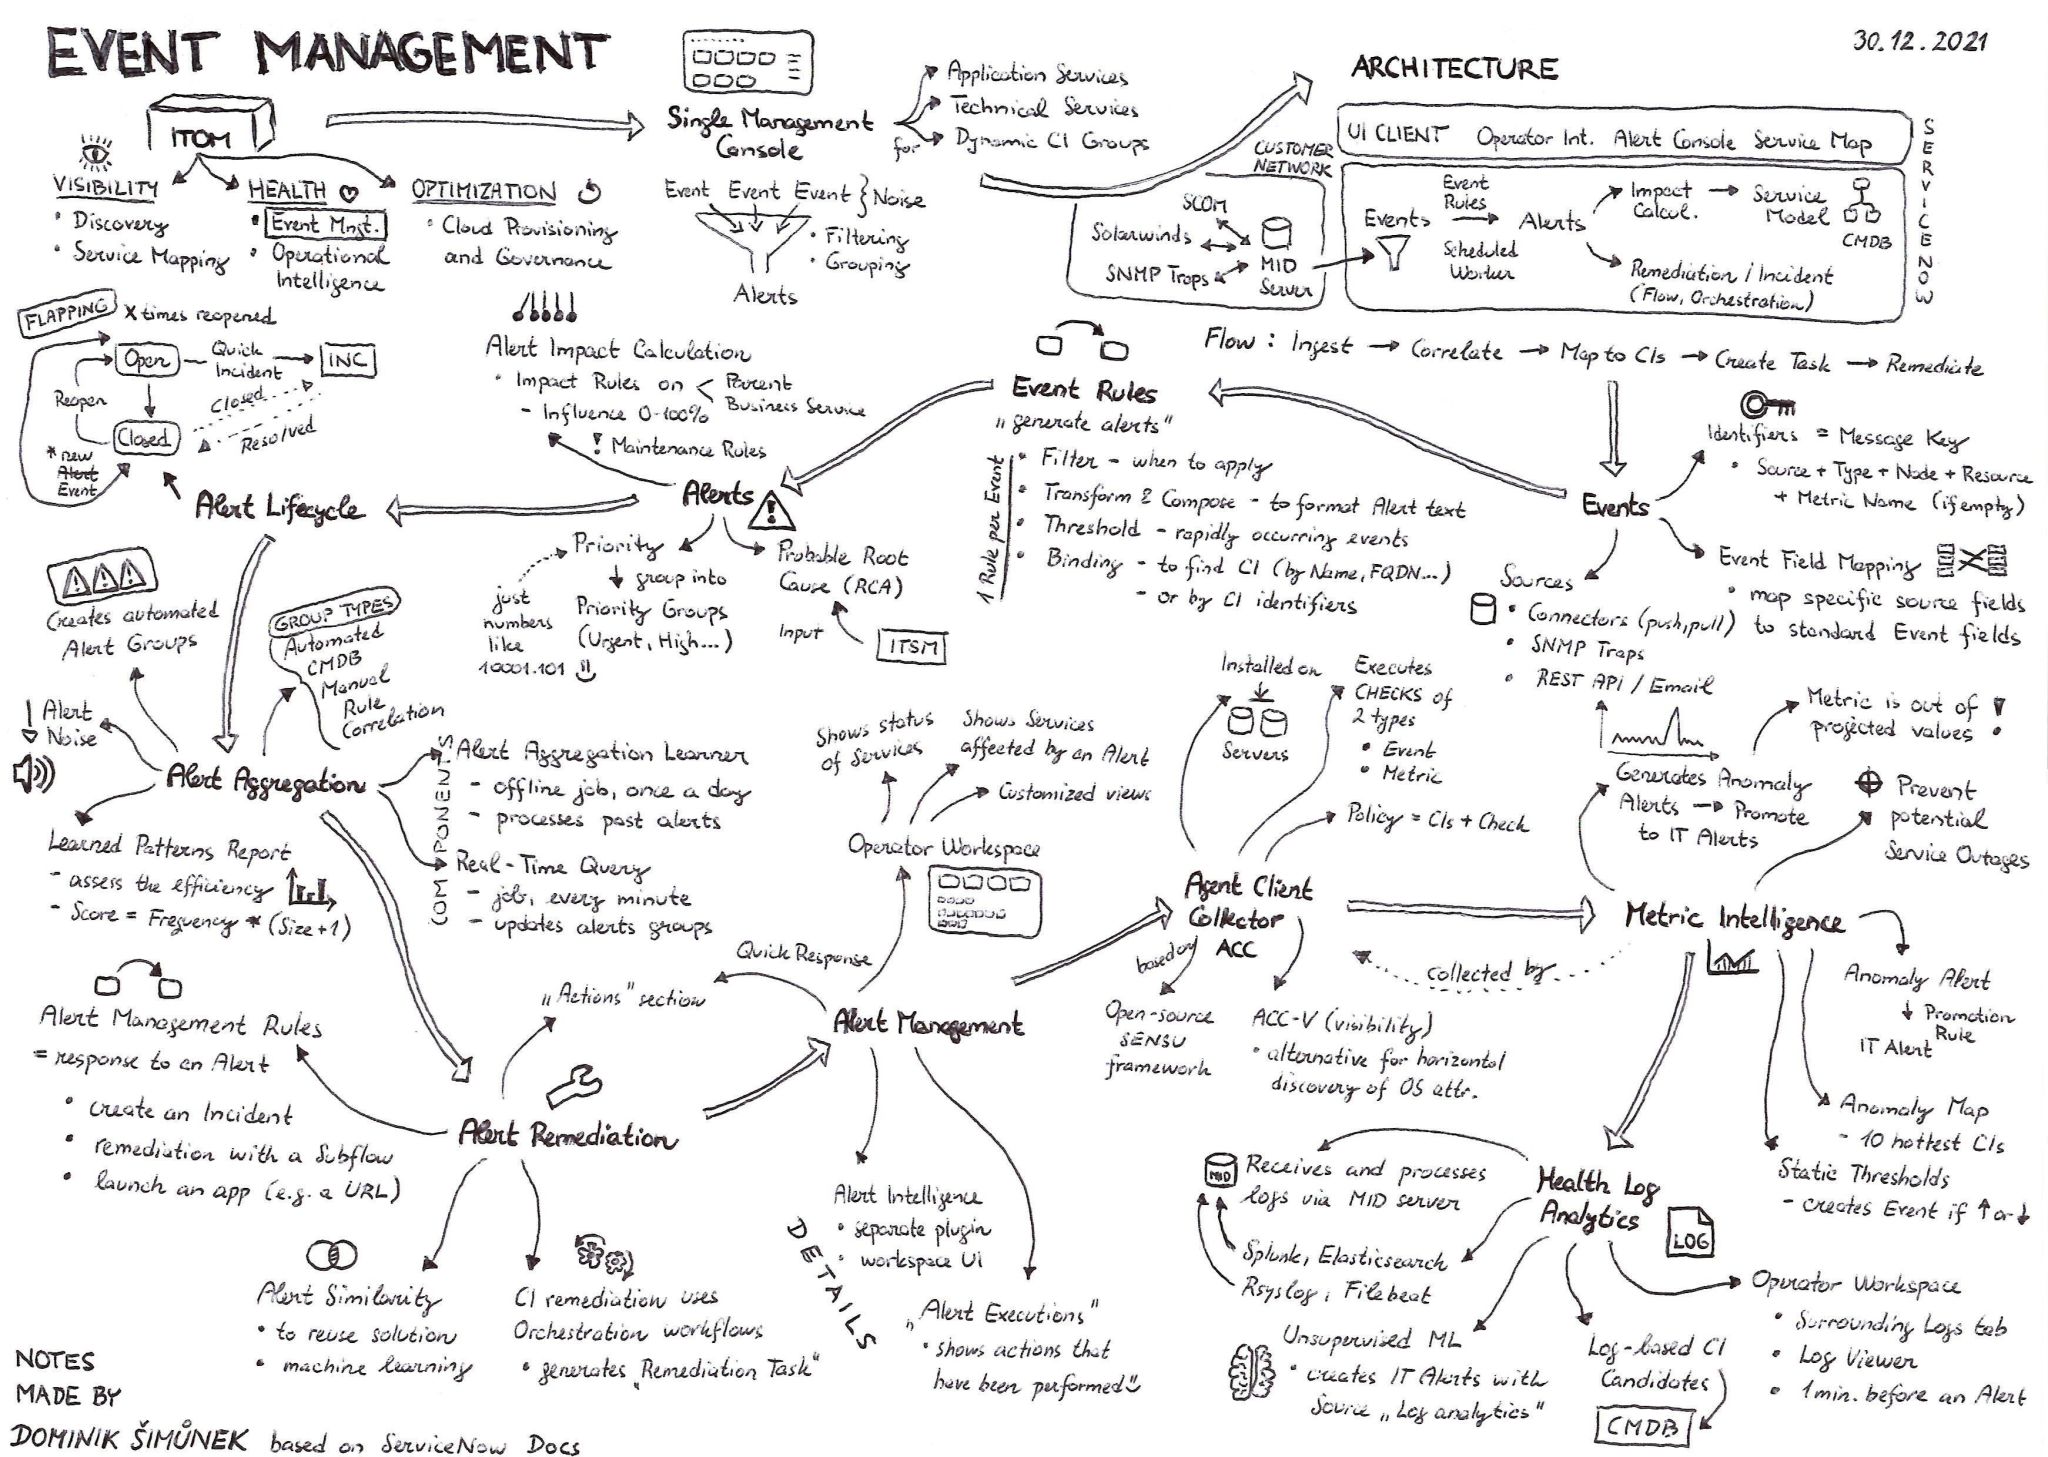 EVENT MANAGEMENT
30.12.2021
ITOM
VISIBILITY
• Discovery
• Service Mapping
HEALTH
• Event Mngt.
• Operational
Intelligence
OPTIMIZATION
• Cloud Provisioning
and Governance
Single Management
Console
for
Application Services
Technical Services
Dynamic CI Groups
Event Event Event } Noise
• Filtering
• Grouping
Alerts
ARCHITECTURE
UI CLIENT Operator Int. Alert Console Service Map
SERVICENOW
CUSTOMER
NETWORK
SCOM
Solarwinds
SNMP Traps
MID
Server
Events
Event
Rules
Scheduled
Worker
Alerts
Impact
Calcul.
Service
Model
CMDB
Remediation / Incident
(Flow, Orchestration)
Flow : Ingest → Correlate → Map to CIs → Create Task → Remediate
FLAPPING
X times reopened
Open
Quick
Incident
INC
Reopen
Closed
Resolved
Closed
* new
Alert
Event
Alert Lifecycle
Alert Impact Calculation
• Impact Rules on < Parent
Business Service
- Influence 0-100%
! Maintenance Rules
Alerts
!
Priority
↓ group into
Priority Groups
(Urgent, High...)
just
numbers
like
10001.101
Probable Root
Cause (RCA)
Input
ITSM
Event Rules
"generate alerts"
1 Rule per Event
• Filter - when to apply
• Transform & Compose - to format Alert text
• Threshold - rapidly occurring events
• Binding - to find CI (by Name, FQDN...)
- or by CI identifiers
Events
Identifiers = Message Key
• Source + Type + Node + Resource
+ Metric Name (if empty)
Event Field Mapping
• map specific source fields
to standard Event fields
Sources
• Connectors (push, pull)
• SNMP Traps
• REST API / Email
! ! !
Creates automated
Alert Groups
GROUP TYPES
Automated
CMDB
Manual
Rule
Correlation
↓ Alert
Noise
Alert Aggregation
COMPONENTS
Alert Aggregation Learner
- offline job, once a day
- processes past alerts
Real-Time Query
- job, every minute
- updates alerts groups
Learned Patterns Report
- assess the efficiency
- Score = Frequency * (Size+1)
Alert Management Rules
= response to an Alert
• create an Incident
• remediation with a Subflow
• launch an app (e.g. a URL)
"Actions" section
Alert Remediation
Alert Similarity
• to reuse solution
• machine learning
CI remediation uses
Orchestration workflows
• generates "Remediation Task"
Shows status
of Services
Shows Services
affected by an Alert
Customized views
Operator Workspace
Quick Response
Alert Management
DETAILS
Alert Intelligence
• separate plugin
• workspace UI
"Alert Executions"
• shows actions that
have been performed
Installed on
Servers
Executes
CHECKS of
2 types
• Event
• Metric
Policy = CIs + Check
Agent Client
Collector
ACC
based on
Open-source
SENSU
framework
ACC-V (visibility)
• alternative for horizontal
discovery of OS attr.
collected by
Metric is out of
projected values
Generates Anomaly
Alerts → Promote
to IT Alerts
Prevent
potential
Service Outages
Metric Intelligence
Anomaly Alert
↓ Promotion
Rule
IT Alert
Anomaly Map
- 10 hottest CIs
Static Thresholds
- creates Event if ↑ or ↓
Health Log
Analytics
LOG
MID
Receives and processes
logs via MID server
Splunk, Elasticsearch
Rsyslog, Filebeat
Unsupervised ML
• creates IT Alerts with
Source "Log analytics"
Log-based CI
Candidates
CMDB
Operator Workspace
• Surrounding Logs tab
• Log Viewer
• 1 min. before an Alert
NOTES
MADE BY
DOMINIK ŠIMŮNEK based on ServiceNow Docs